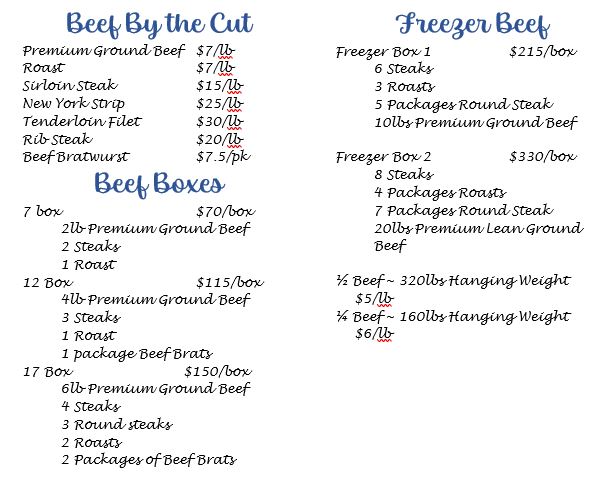 Beef By the Cut
Premium Ground Beef $7/lb
Roast $7/lb
Sirloin Steak $15/lb
New York Strip $25/lb
Tenderloin Filet $30/lb
Rib Steak $20/lb
Beef Bratwurst $7.5/pk
Beef Boxes
7 box $70/box
2lb Premium Ground Beef
2 Steaks
1 Roast
12 Box $115/box
4lb Premium Ground Beef
3 Steaks
1 Roast
1 package Beef Brats
17 Box $150/box
6lb Premium Ground Beef
4 Steaks
3 Round steaks
2 Roasts
2 Packages of Beef Brats
Freezer Beef
Freezer Box 1 $215/box
6 Steaks
3 Roasts
5 Packages Round Steak
10lbs Premium Ground Beef
Freezer Box 2 $330/box
8 Steaks
4 Packages Roasts
7 Packages Round Steak
20lbs Premium Lean Ground
Beef
½ Beef ~ 320lbs Hanging Weight
$5/lb
¼ Beef ~ 160lbs Hanging Weight
$6/lb